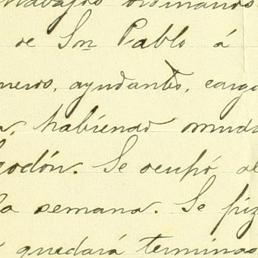 trabajos ordinarios
de Sn Pablo á
neros, ayudantes, carg
habiendo muda
godón. Se ocupó al
la semana. Se hiz
quedará terminad